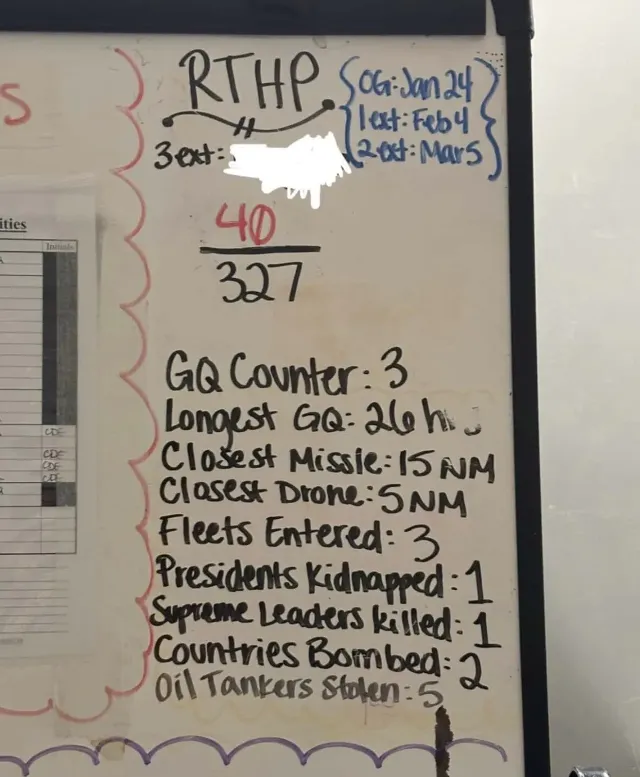 S
RTHP
OG: Jan 24
1ext: Feb 4
2ext: Mar 5
3ext:
40
327
ities
Initials
CDE
CDE
CDE
CDE
GQ Counter: 3
Longest GQ: 26 hrs
Closest Missle: 15 NM
Closest Drone: 5 NM
Fleets Entered: 3
Presidents Kidnapped: 1
Supreme Leaders killed: 1
Countries Bombed: 2
Oil Tankers Stolen: 5